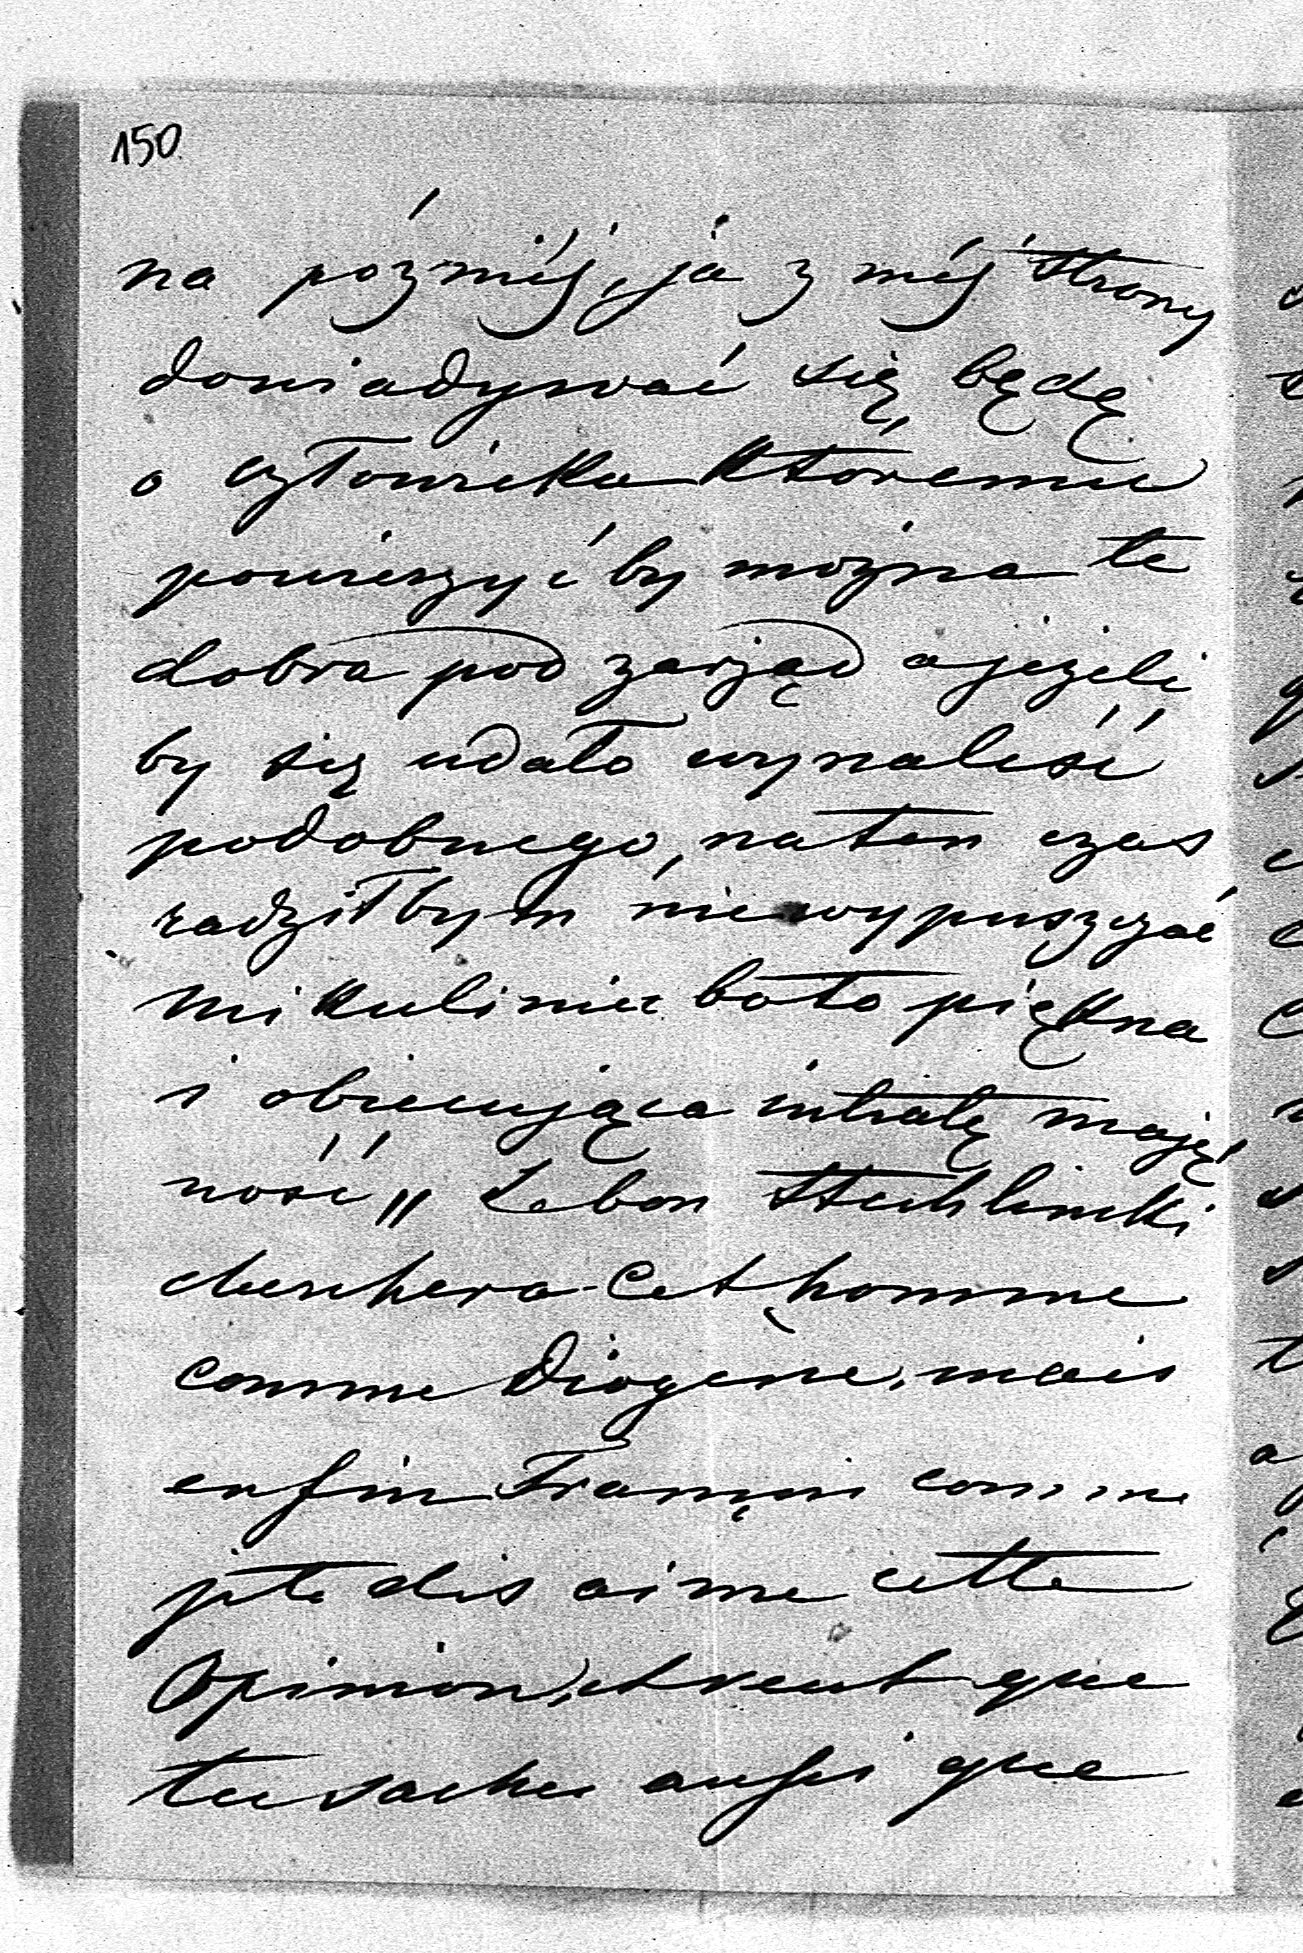 150
na póżniéj, ja z méj strony
dowiadywać się będę
o człowieka któremu
powierzyć by można te
dobra pod zarząd a jeżeli
by się udało wynaleść
podobnego, na ten czas
radziłbym nie wypuszczać
Mikuliniec bo to piękna
i obiecująca intratę mają
ność „ Le bon
cherchera Cet homme
comme Diogene, mais
enfin François comme
je te dis aime cette
Opinion, et veut que
tu saches aussi que